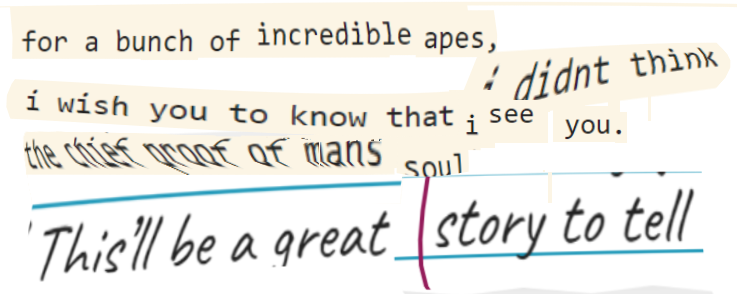 for a bunch of incredible apes,
i didnt think
i wish you to know that i see you.
the chief proof of mans soul
This'll be a great story to tell